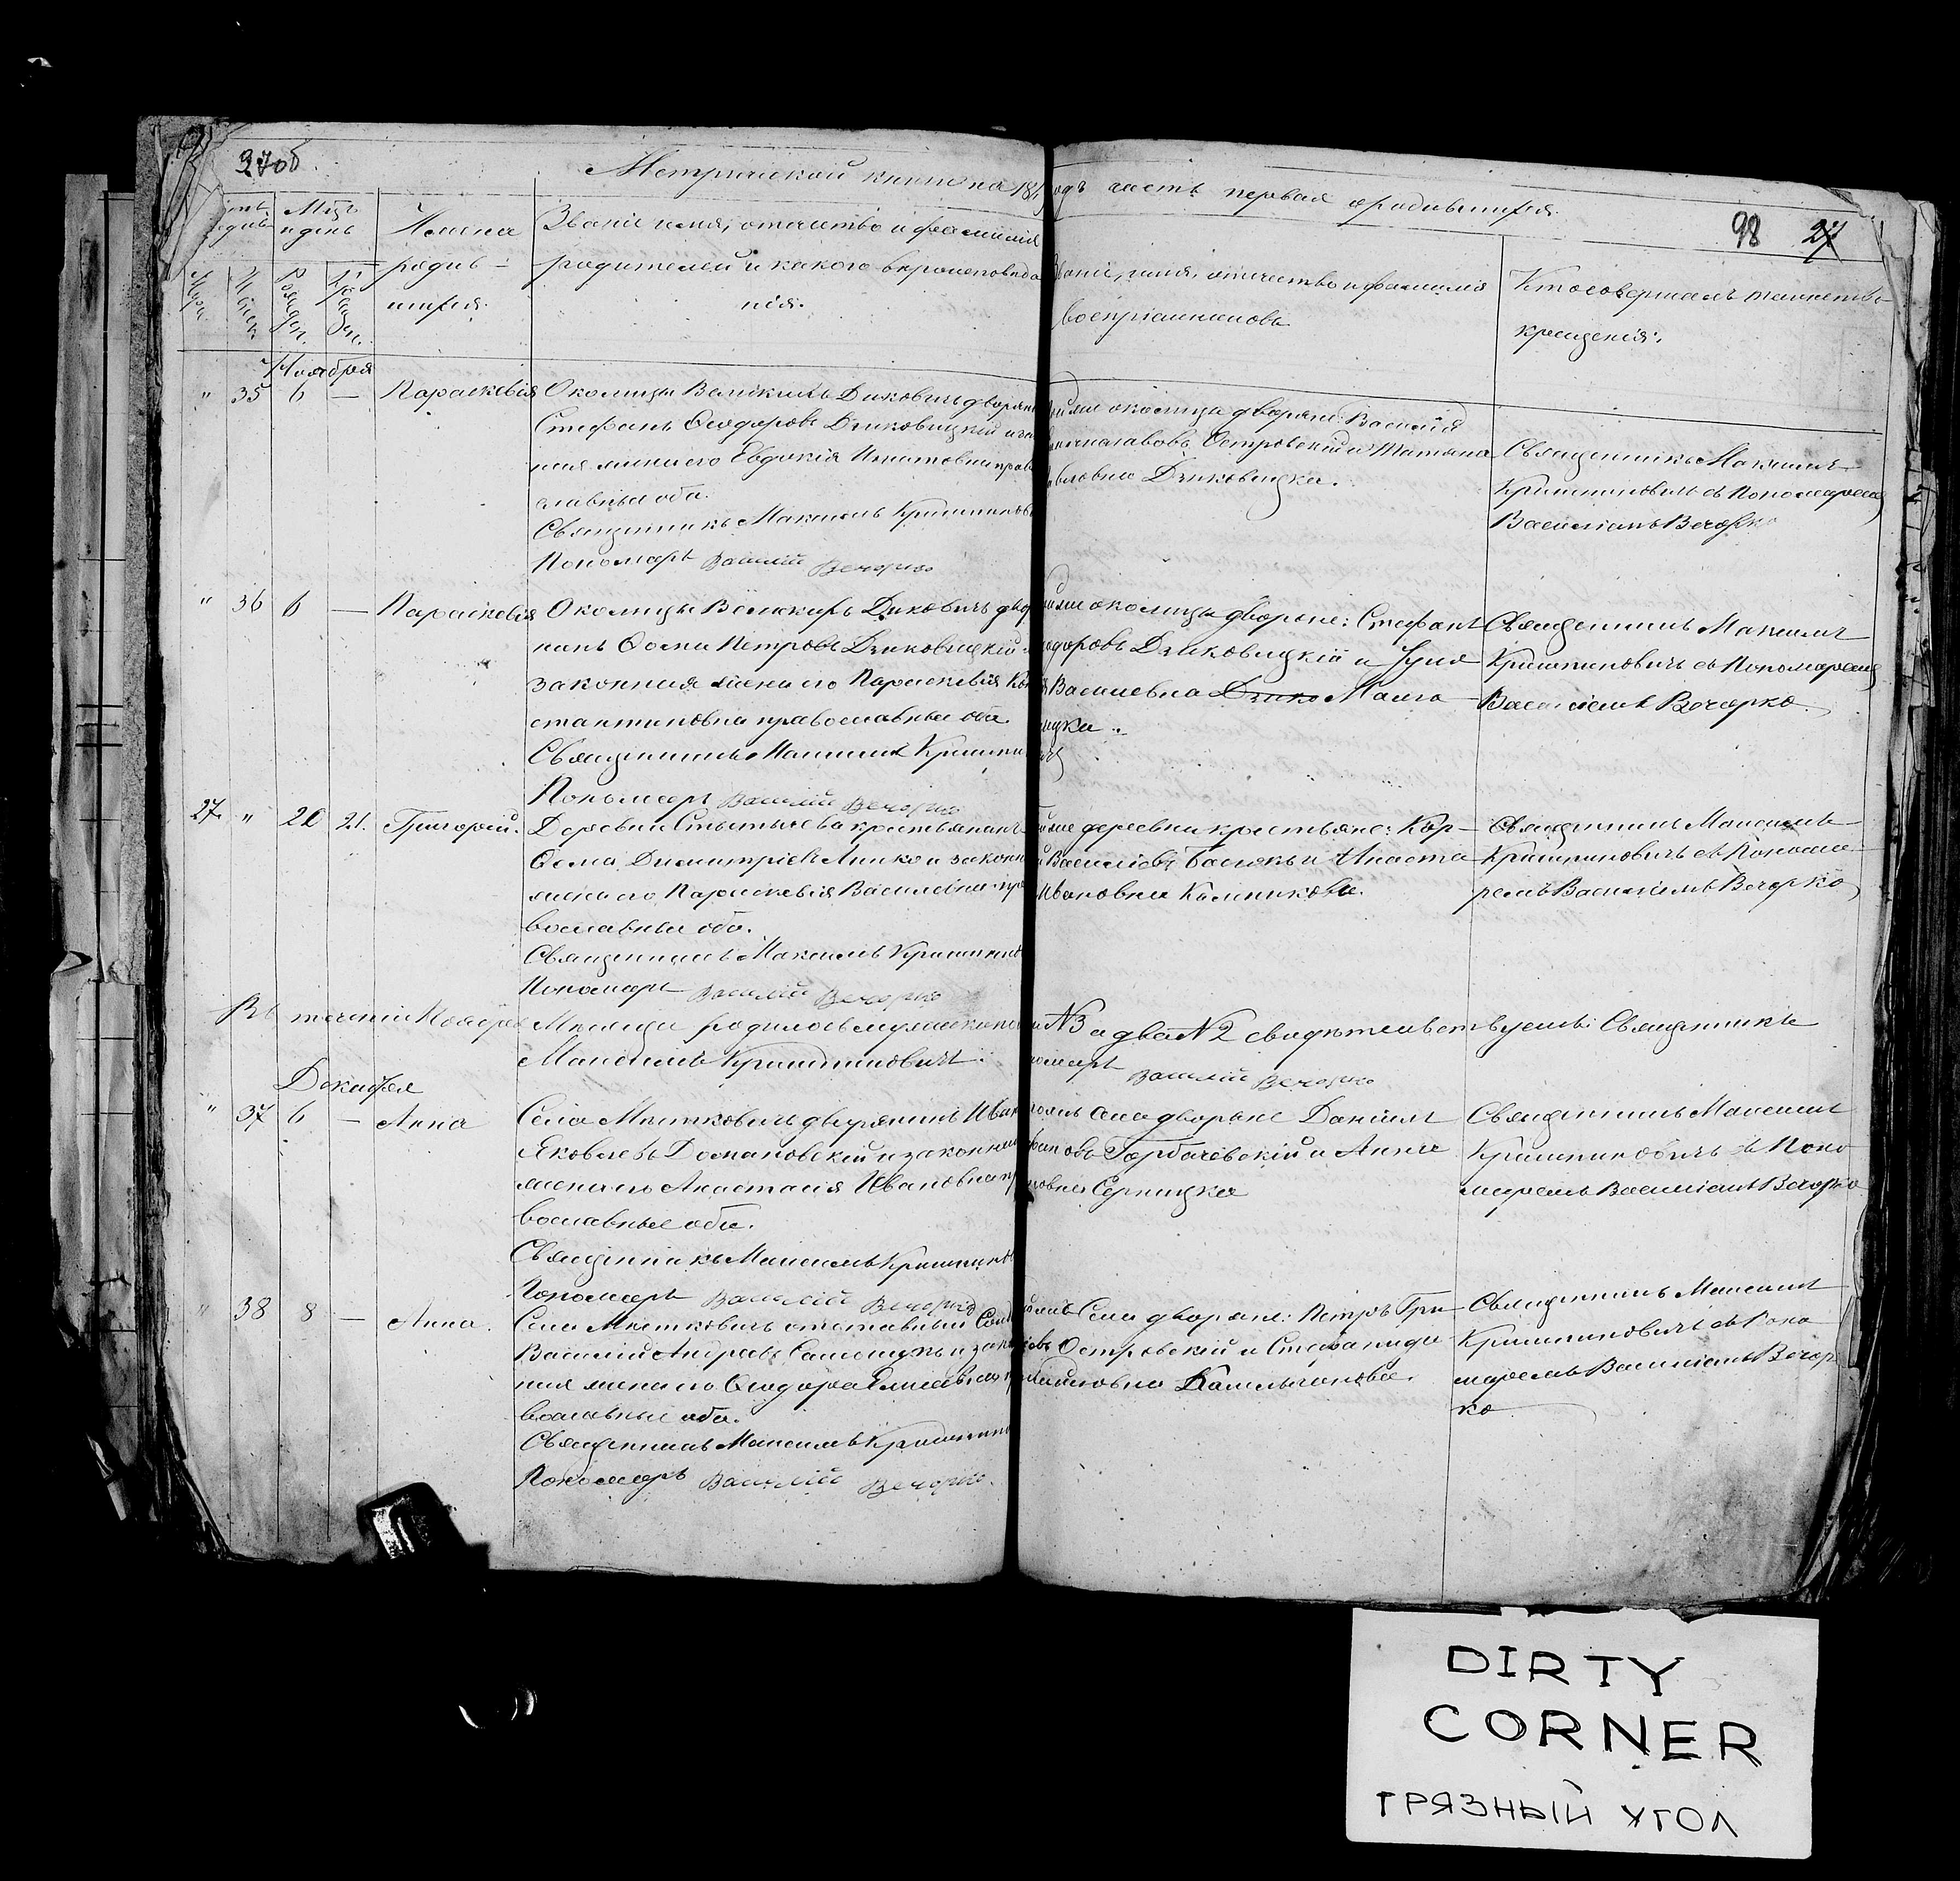 37 об.
Метрической книги на 18
одъ часть первая о родившихся.
98 27
Мѣць и день
Имена родив-
шихся.
Званіе имя, отчество и фамилія
родителей и какого вѣроисповѣда
нія.
Званіе, имя, отчество и фамилія
воспріемниковъ
Кто совершалъ таинство
крещенія.
Ноября
" 35 6 — Параскевія
Околицы Великихъ Диковичъ дворян
Стефанъ Ѳеодоровъ Дзиковицкій и зак
ная жена его Евдокія Игнатовна прав
славные оба.
Священникъ Максимъ Криштинов
Пономарь Василій Вечорко
околицы дворяне: Василій
Островскій и Татьяна
Дзиковицка.
Священникъ Максимъ
Криштиновичъ съ Пономаремъ
Василіемъ Вечорко
" 36 6 — Параскевія
Околицы Великихъ Диковичъ двор
нинъ Ѳома Петровъ Дзиковицкій и
законная жена его Параскевія Кон
стантиновна православные оба.
Священникъ Максимъ Криштин
Пономарь Василій Вечорко
околицы дворяне: Стефанъ
одоровъ Дзиковицкій и Iулія
Василевна Дзико Малго
ицка.
Священникъ Максимъ
Криштиновичъ съ Пономаремъ
Василіемъ Вечорко.
27 " 20 21. Григорій.
Деревни Стытычева крестьянинъ
Ѳома Димитріевъ Липко и законн
жена его Параскевія Василевна пра
вославные оба.
Священникъ Максимъ Криштинов
Пономарь Василій Вечорко
деревни крестьяне: Кор-
Василіевъ Басюкъ и Анаста
Ивановна Калникова.
Священникъ Максимъ
Криштиновичъ съ Понома-
ремъ Василіемъ Вечорко
Въ теченіи Ноября Мѣсяца родилось мужеска по
N3 а два N2 свидѣтельствуемъ: Священникъ
Максимъ Криштиновичъ.
номарь Василій Вечорко
Декабря
" 37 6 — Анна
Села Мѣстковичъ дворянинъ Иван
Яковлевъ Домановскій и законная
жена его Анастасія Ивановна пра
вославные оба.
Священникъ Максимъ Криштинов
Пономарь Василій Вечорко
села дворяне Даніилъ
фановъ Горбачевскій и Анна
новна Серницка
Священникъ Максимъ
Криштиновичъ съ Поно
маремъ Василіемъ Вечорко
" 38 8 — Анна.
Села Мѣстковичъ отставный Солд
Василій Андреевъ и зако
ная жена его Ѳеодора пра
вославные оба.
Священникъ Максимъ Криштинов
Пономарь Василій Вечорко.
Села дворяне: Петръ Гри-
Островскій и Стефанида
Священникъ Максимъ
Криштиновичъ съ Поно
маремъ Василіемъ Вечор
ко
DIRTY
CORNER
ГРЯЗНЫЙ УГОЛ